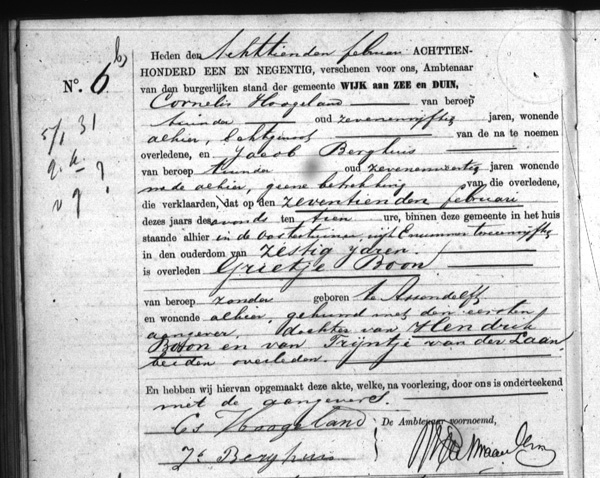 Heden den Achttienden februari ACHTTIEN-
N°. 6 b) HONDERD EEN EN NEGENTIG, verschenen voor ons, Ambtenaar
van den burgerlijken stand der gemeente WIJK aan ZEE en DUIN,
Cornelis Hoogeland van beroep
tuinder oud zevenenvijftig jaren, wonende
alhier, Echtgenoot van de na te noemen
overledene, en Jacob Berghuis
van beroep tuinder oud zevenenveertig jaren wonende
mede alhier, geene betrekking van die overledene,
die verklaarden, dat op den zeventienden februari
dezes jaars des avonds ten tien ure, binnen deze gemeente in het huis
staande alhier in de Oostertuinen, wijk E nummer tweeenvijftig
in den ouderdom van zestig jaren.
is overleden Grietje Boon
van beroep zonder geboren te Assendelft
en wonende alhier, gehuwd met den eersten
aangever, dochter van Hendrik
Boon en van Trijntje van der Laan
beiden overleden.
En hebben wij hiervan opgemaakt deze akte, welke, na voorlezing, door ons is onderteekend
met de aangevers.
De Ambtenaar voornoemd,
Cs Hoogeland
Jb Berghuis
5/1 31